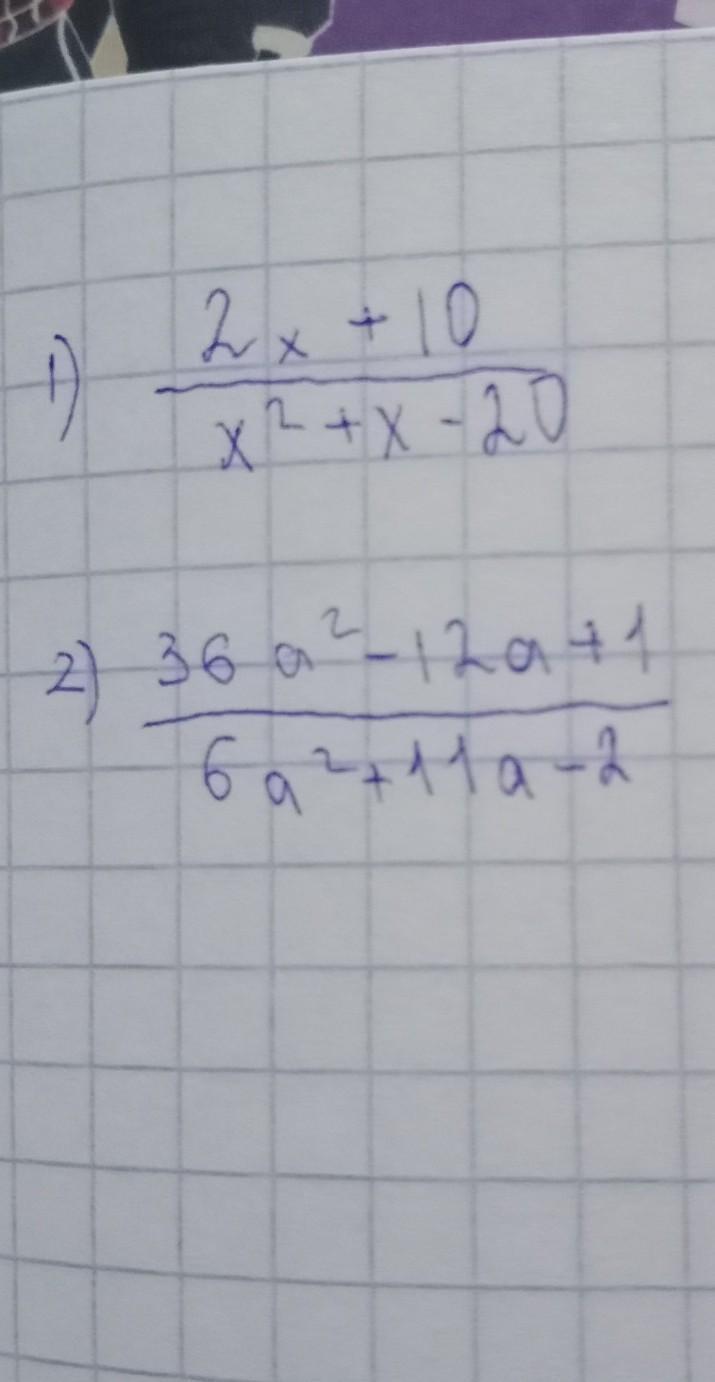 1) 2x + 10
x² + x - 20
2) 36a² - 12a + 1
6a² + 11a - 2